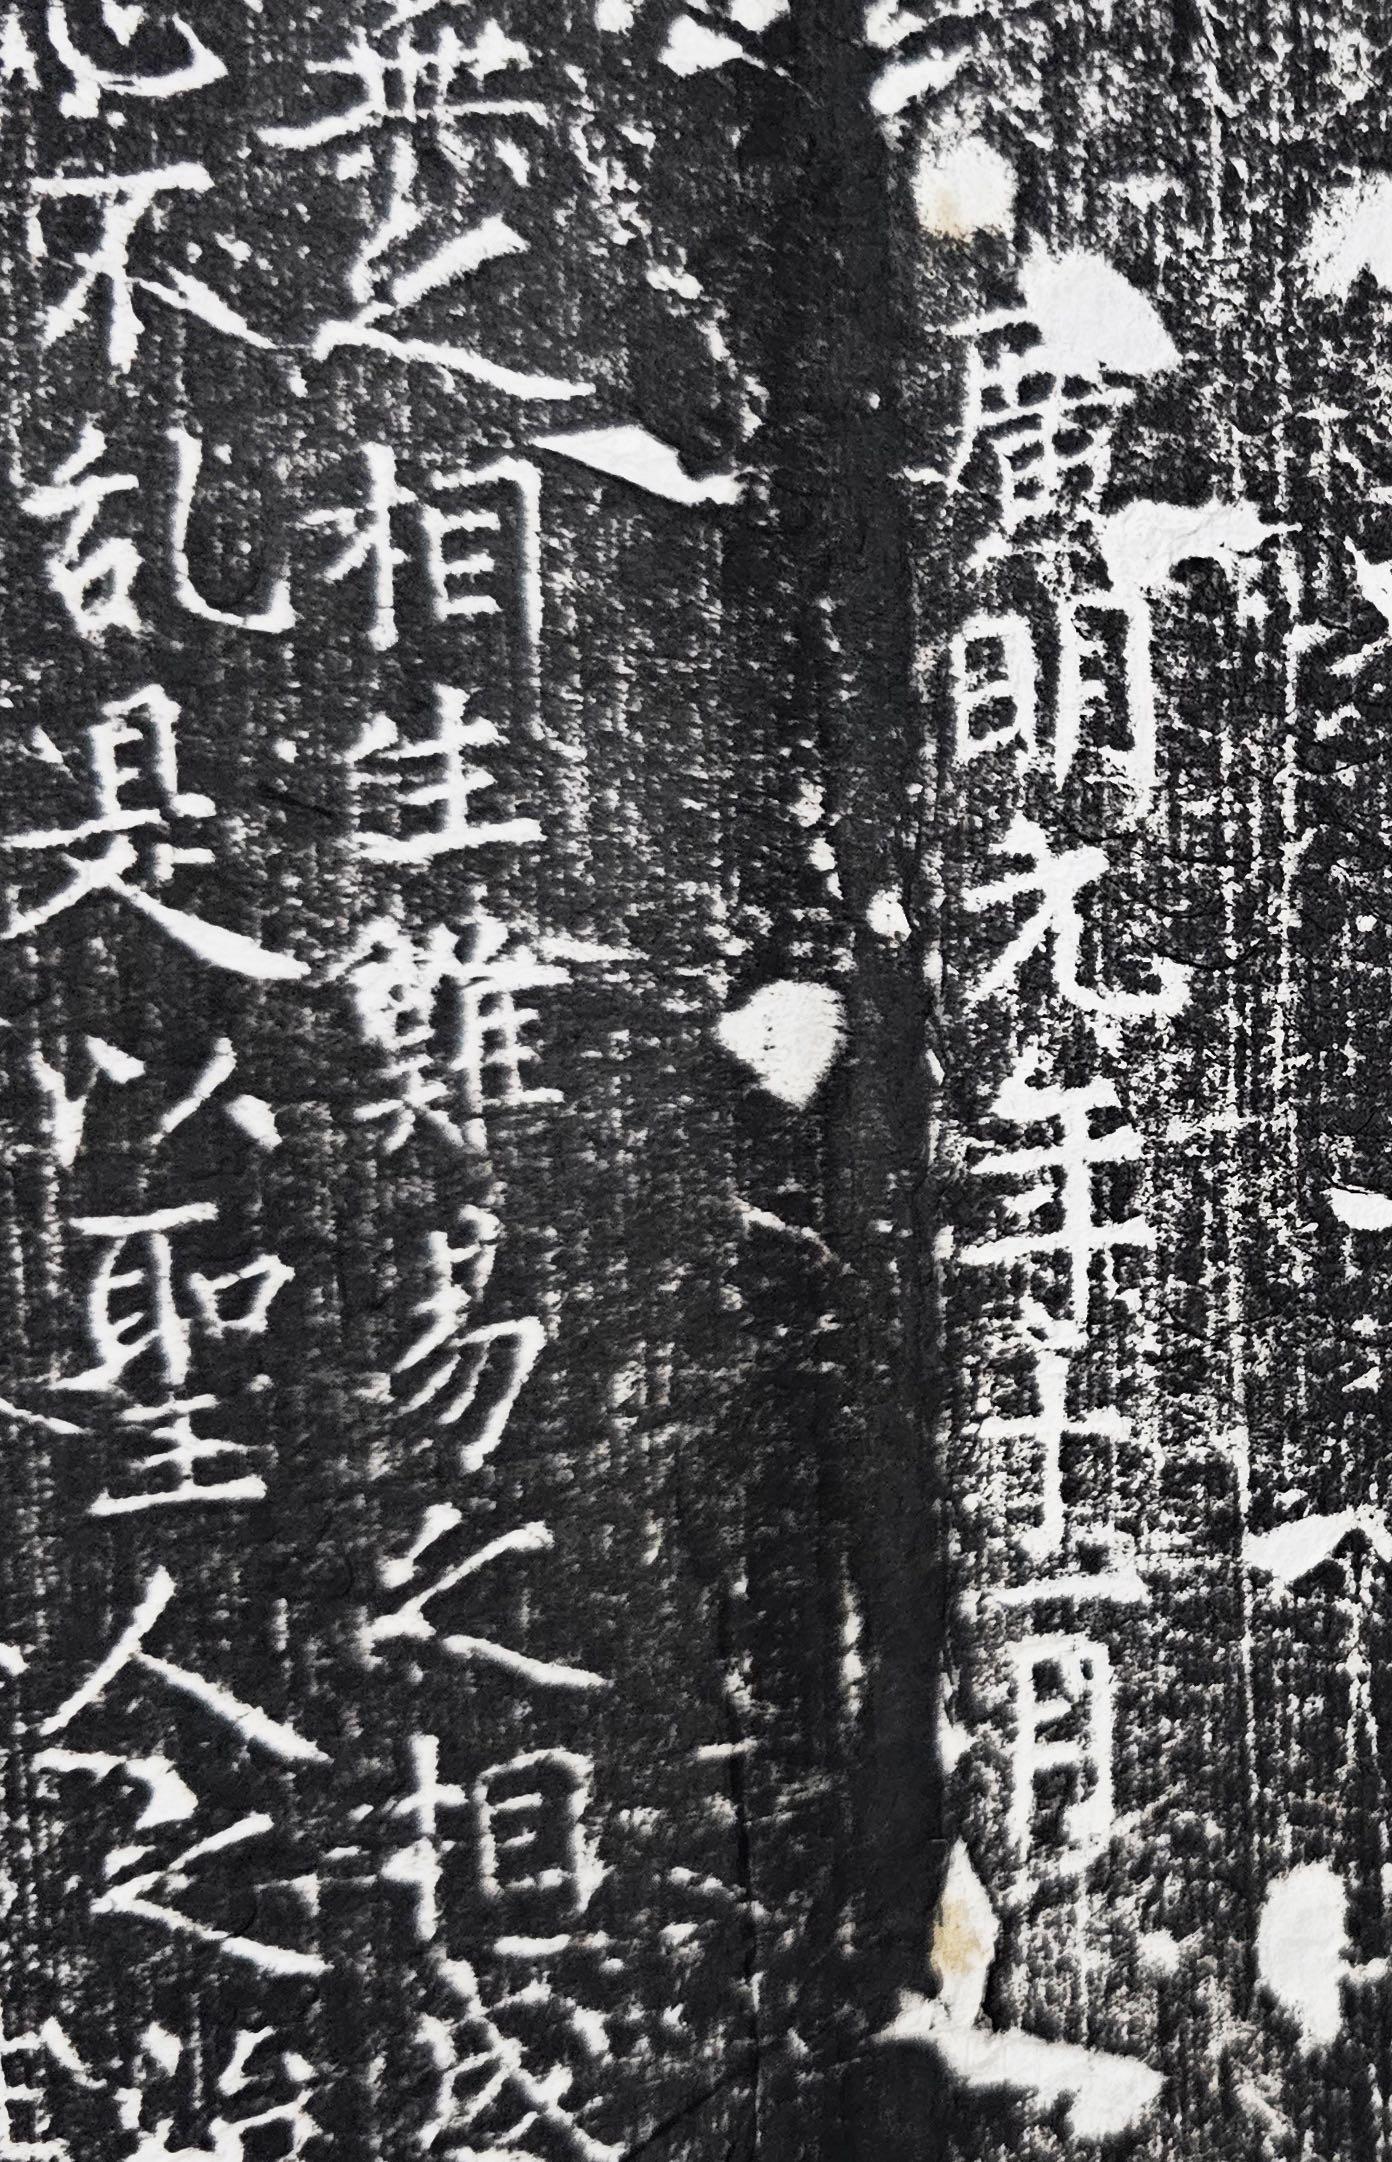 廣明元年十一月
無之相生難易之相成
心不乱是以聖人之治